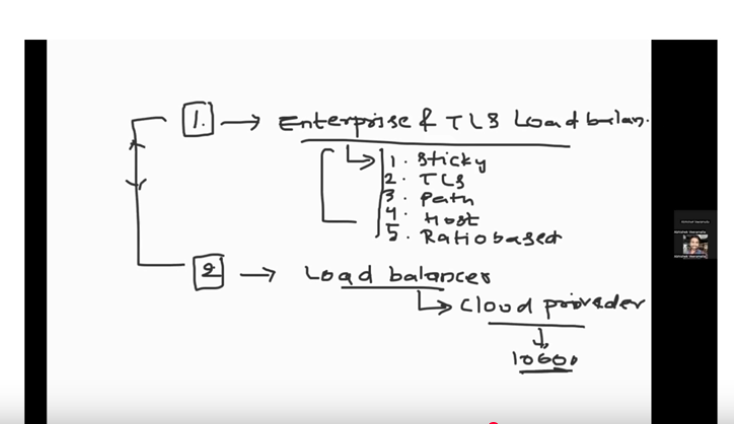 1. → Enterprise & TLS Load balan.
1. Sticky
2. TLS
3. Path
4. Host
5. Ratio based
2 → Load balances
Cloud provider